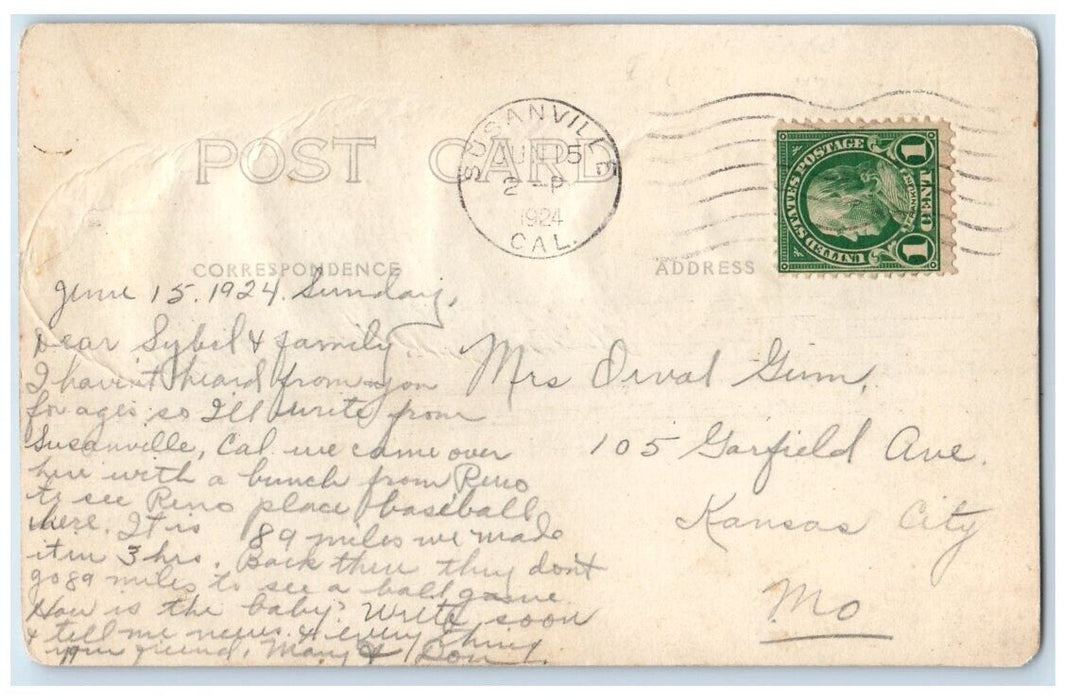 POST CARD
SUSANVILLE
JUN 15
2 - P
1924
CAL.
UNITED STATES POSTAGE
1 CENT 1
CORRESPONDENCE
ADDRESS
June 15. 1924. Sunday,
Dear Sybel & family,
I haven't heard from you
for ages so I'll write from
Susanville, Cal. we came over
here with a bunch from Reno
to see Reno place baseball
here. It is 89 miles we made
it in 3 hrs. Back there they don't
go 89 miles to see a ball game.
How is the baby? Write soon
& tell me news & every thing
your friend, Mary & Don.
Mrs Orval Gunn,
105 Garfield Ave.
Kansas City
Mo